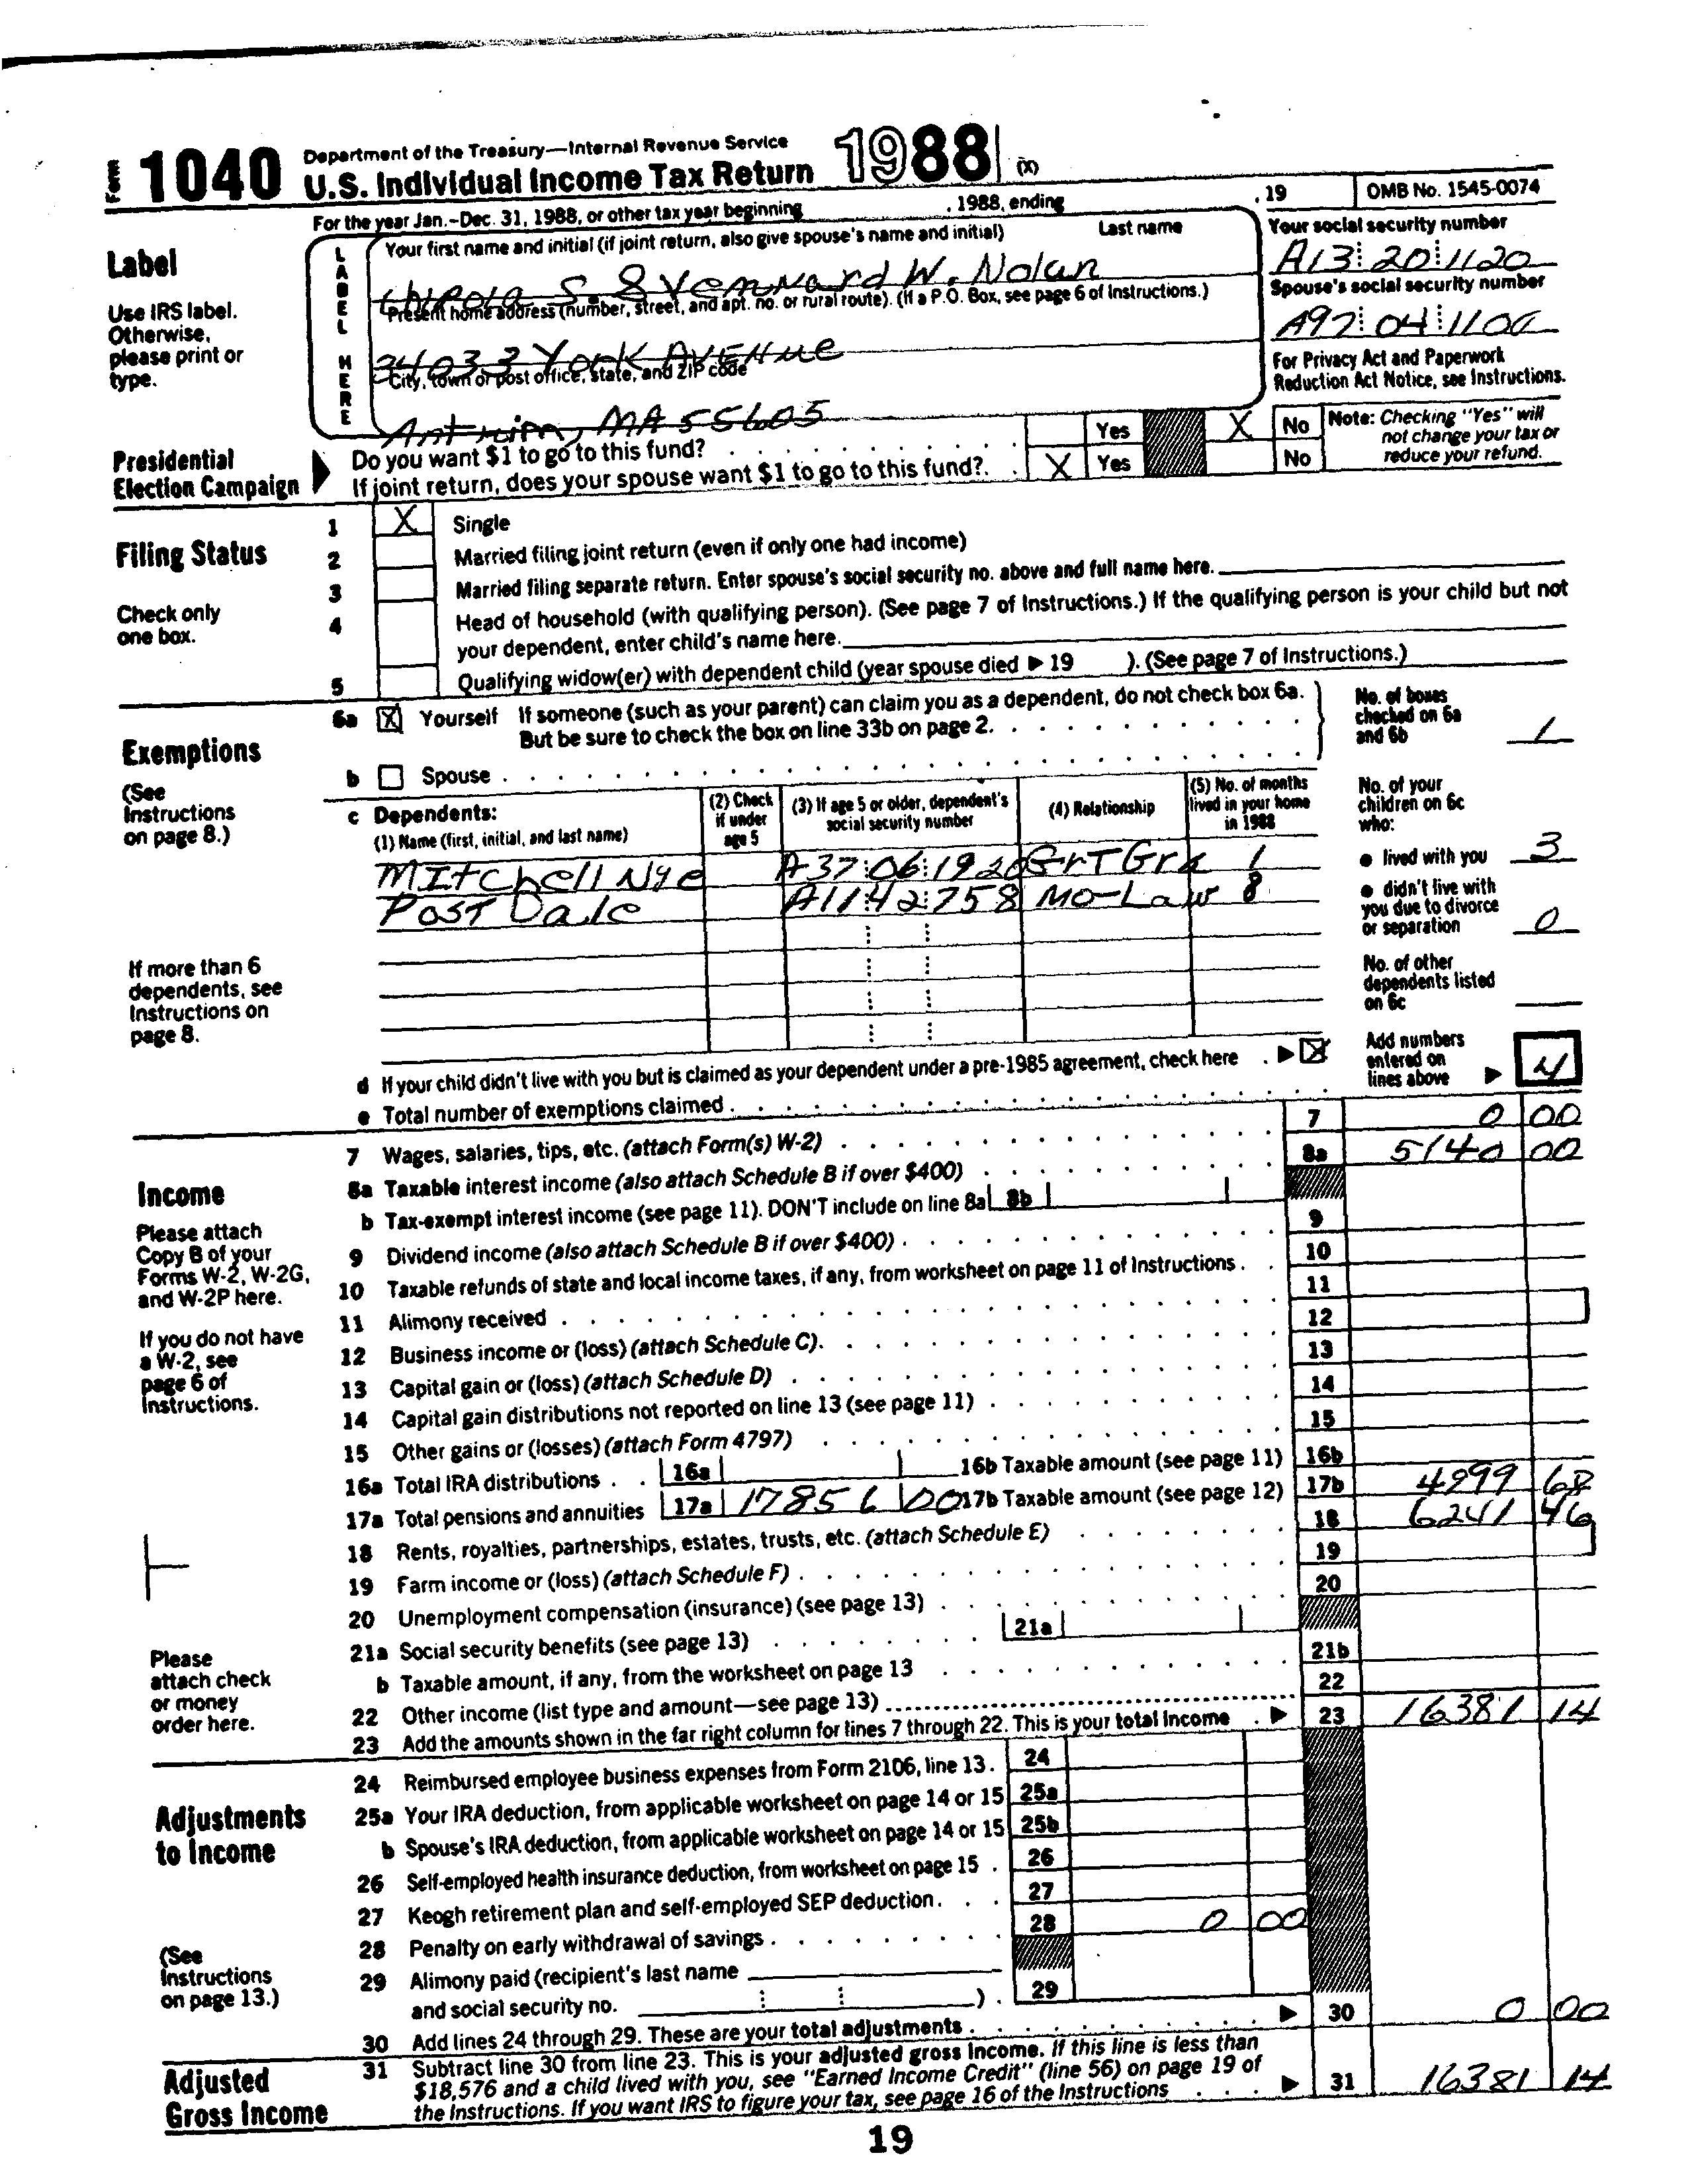 Form 1040 Department of the Treasury—Internal Revenue Service
U.S. Individual Income Tax Return 1988 (X)
For the year Jan.–Dec. 31, 1988, or other tax year beginning , 1988, ending , 19 OMB No. 1545-0074
Label
Use IRS label. Otherwise, please print or type.
LABEL HERE
Your first name and initial (if joint return, also give spouse's name and initial) Last name
S. & W. Nolan
Your social security number
A13 20 1120
Present home address (number, street, and apt. no. or rural route). (If a P.O. Box, see page 6 of Instructions.)
34033 York AVENUE
Spouse's social security number
A97 04 1100
City, town or post office, state, and ZIP code
Antrim, MA 55605
For Privacy Act and Paperwork Reduction Act Notice, see Instructions.
Presidential Election Campaign
Do you want $1 to go to this fund? Yes X No
If joint return, does your spouse want $1 to go to this fund? X Yes No
Note: Checking "Yes" will not change your tax or reduce your refund.
Filing Status
Check only one box.
1 X Single
2 Married filing joint return (even if only one had income)
3 Married filing separate return. Enter spouse's social security no. above and full name here.
4 Head of household (with qualifying person). (See page 7 of Instructions.) If the qualifying person is your child but not
your dependent, enter child's name here.
5 Qualifying widow(er) with dependent child (year spouse died ▶ 19 ). (See page 7 of Instructions.)
Exemptions
(See Instructions on page 8.)
6a X Yourself If someone (such as your parent) can claim you as a dependent, do not check box 6a.
But be sure to check the box on line 33b on page 2.
b Spouse
No. of boxes checked on 6a and 6b 1
c Dependents:
(1) Name (first, initial, and last name)
(2) Check if under age 5
(3) If age 5 or older, dependent's social security number
(4) Relationship
(5) No. of months lived in your home in 1988
Mitchell Nye A37 06 1920 GrTGra 1
Post Dale A11 42 758 Mo-Law 8
No. of your children on 6c who:
● lived with you 3
● didn't live with you due to divorce or separation 0
No. of other dependents listed on 6c
If more than 6 dependents, see Instructions on page 8.
d If your child didn't live with you but is claimed as your dependent under a pre-1985 agreement, check here ▶ X
e Total number of exemptions claimed
Add numbers entered on lines above ▶ 4
Income
Please attach Copy B of your Forms W-2, W-2G, and W-2P here.
If you do not have a W-2, see page 6 of Instructions.
Please attach check or money order here.
7 Wages, salaries, tips, etc. (attach Form(s) W-2) 7 0 00
8a Taxable interest income (also attach Schedule B if over $400) 8a 5140 00
b Tax-exempt interest income (see page 11). DON'T include on line 8a 8b
9 Dividend income (also attach Schedule B if over $400) 9
10 Taxable refunds of state and local income taxes, if any, from worksheet on page 11 of Instructions 10
11 Alimony received 11
12 Business income or (loss) (attach Schedule C) 12
13 Capital gain or (loss) (attach Schedule D) 13
14 Capital gain distributions not reported on line 13 (see page 11) 14
15 Other gains or (losses) (attach Form 4797) 15
16a Total IRA distributions 16a 16b Taxable amount (see page 11) 16b
17a Total pensions and annuities 17a 17856 00 17b Taxable amount (see page 12) 17b 4999 68
18 Rents, royalties, partnerships, estates, trusts, etc. (attach Schedule E) 18 6241 46
19 Farm income or (loss) (attach Schedule F) 19
20 Unemployment compensation (insurance) (see page 13) 20
21a Social security benefits (see page 13) 21a
b Taxable amount, if any, from the worksheet on page 13 21b
22 Other income (list type and amount—see page 13) 22
23 Add the amounts shown in the far right column for lines 7 through 22. This is your total income ▶ 23 16381 14
Adjustments to Income
(See Instructions on page 13.)
24 Reimbursed employee business expenses from Form 2106, line 13. 24
25a Your IRA deduction, from applicable worksheet on page 14 or 15 25a
b Spouse's IRA deduction, from applicable worksheet on page 14 or 15 25b
26 Self-employed health insurance deduction, from worksheet on page 15 26
27 Keogh retirement plan and self-employed SEP deduction 27
28 Penalty on early withdrawal of savings 28 0 00
29 Alimony paid (recipient's last name
and social security no. ) 29
30 Add lines 24 through 29. These are your total adjustments ▶ 30 0 00
Adjusted Gross Income
31 Subtract line 30 from line 23. This is your adjusted gross income. If this line is less than
$18,576 and a child lived with you, see "Earned Income Credit" (line 56) on page 19 of
the Instructions. If you want IRS to figure your tax, see page 16 of the Instructions ▶ 31 16381 14
19